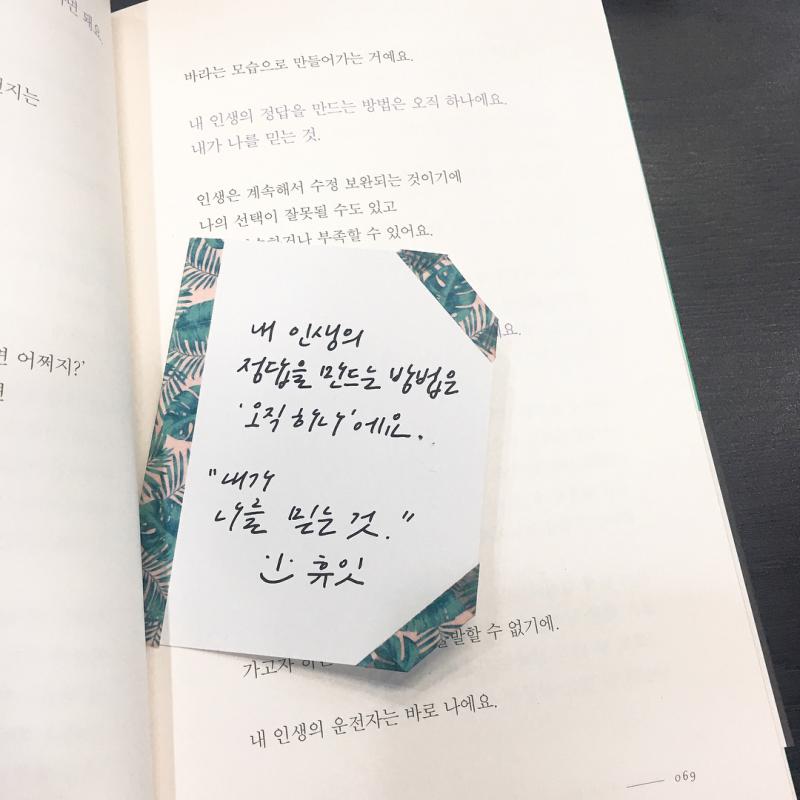 면 돼요.
지는
면 어쩌지?'
바라는 모습으로 만들어가는 거예요.
내 인생의 정답을 만드는 방법은 오직 하나에요.
내가 나를 믿는 것.
인생은 계속해서 수정 보완되는 것이기에
나의 선택이 잘못될 수도 있고
부족할 수 있어요.
요.
내 인생의
정답을 만드는 방법은
'오직 하나'에요.
"내가
나를 믿는 것."
휴잇
수 없기에.
가고자
내 인생의 운전자는 바로 나에요.
069